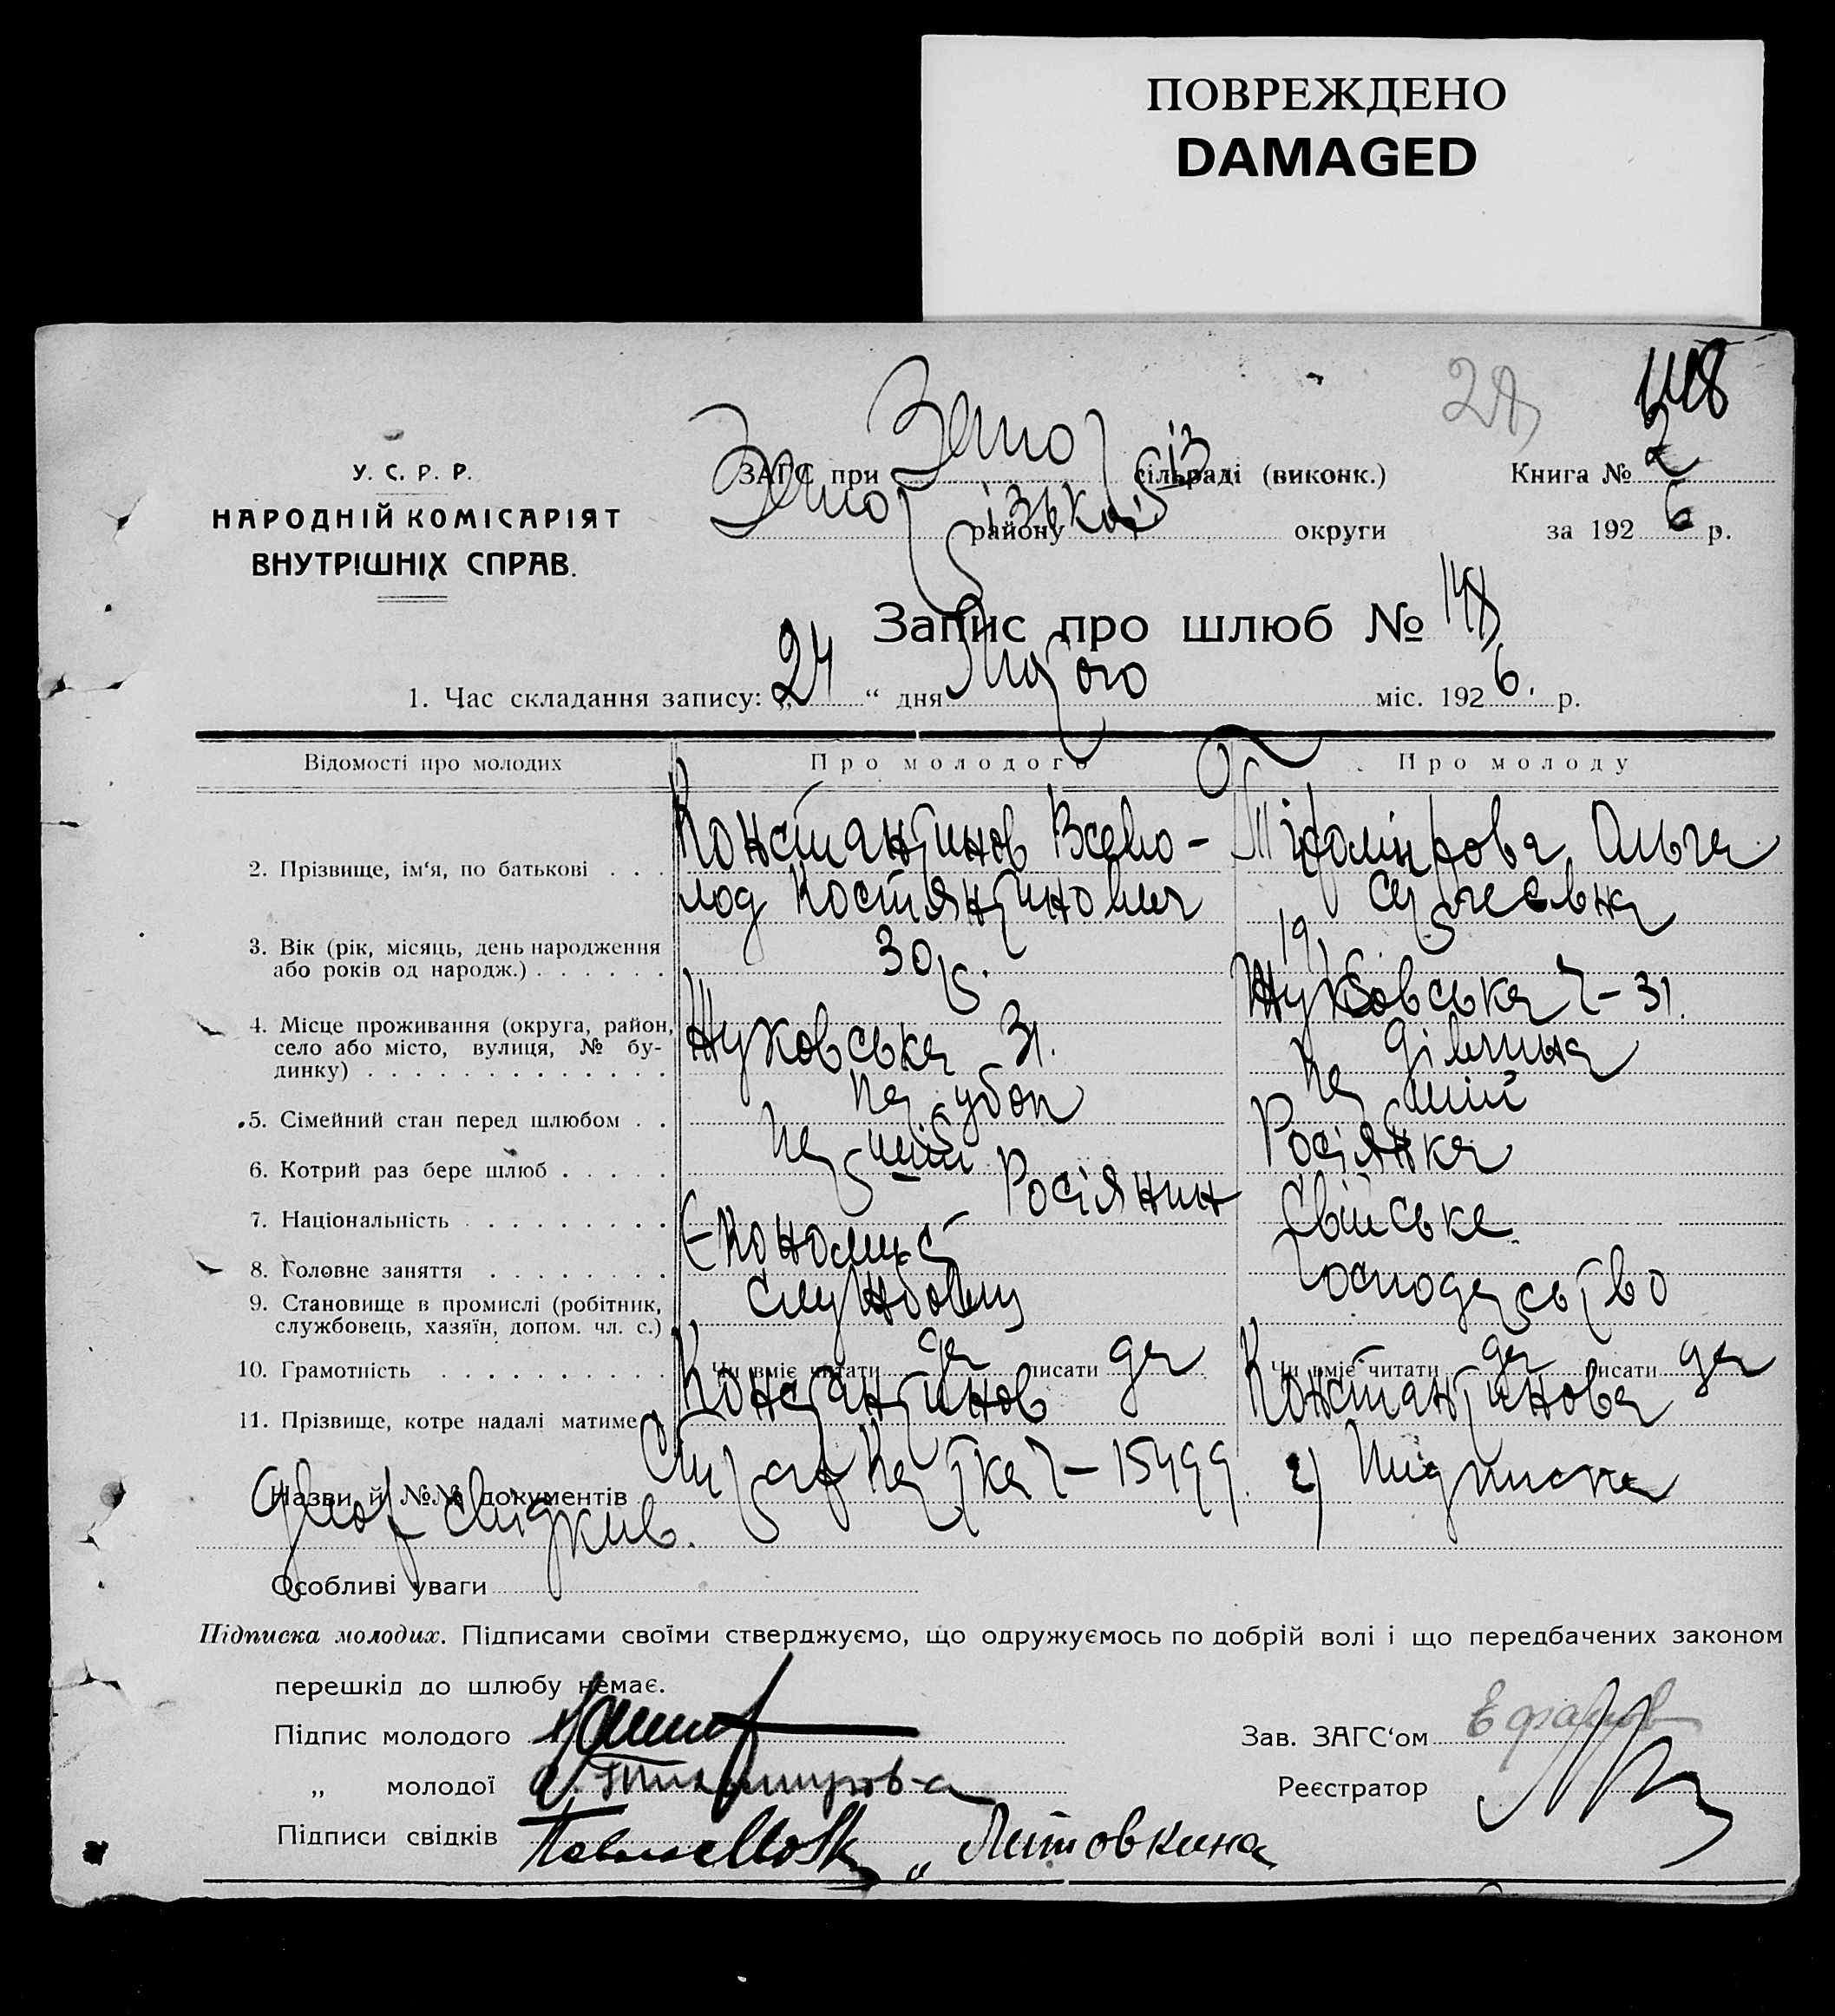 ПОВРЕЖДЕНО
DAMAGED
28
148
У. С. Р. Р.
НАРОДНІЙ КОМІСАРІЯТ
ВНУТРІШНІХ СПРАВ.
ЗАГС при Запоріз сільраді (виконк.) Книга № 2
Запорізькой району округи за 1926 р.
Запис про шлюб № 148
1. Час складання запису: „24“ дня Лютого міс. 1926. р.
Відомості про молодих Про молодого Про молоду
2. Прізвище, ім‘я, по батькові . . . Константинов Всево- Ольга
лод Костянтинович Сергеєвна
3. Вік (рік, місяць, день народження 30 р. 19 р.
або років од народж.) . . . . . .
4. Місце проживання (округа, район, Жуковська 31. Жуковська ч-31.
село або місто, вулиця, № бу-
динку) . . . . . . . . . . . . .
5. Сімейний стан перед шлюбом . . Парубок Дівчина
6. Котрий раз бере шлюб . . . . . Перший Перший
7. Національність . . . . . . . . . Росіянин Росіянка
8. Головне заняття . . . . . . . . Економіст Свійське
9. Становище в промислі (робітник, господарство
службовець, хазяїн, допом. чл. с.)
10. Грамотність . . . . . . . . . . Чи вміє читати да писати да Чи вміє читати да писати да
11. Прізвище, котре надалі матиме . Константинов Константинова
Назви й №№ документів картка ч-15499. 2) Підписка
двох свідків.
Особливі уваги
Підписка молодих. Підписами своїми стверджуємо, що одружуємось по добрій волі і що передбачених законом
перешкід до шлюбу немає.
Підпис молодого Зав. ЗАГС‘ом
„ молодої Реєстратор
Підписи свідків „ Литовкина